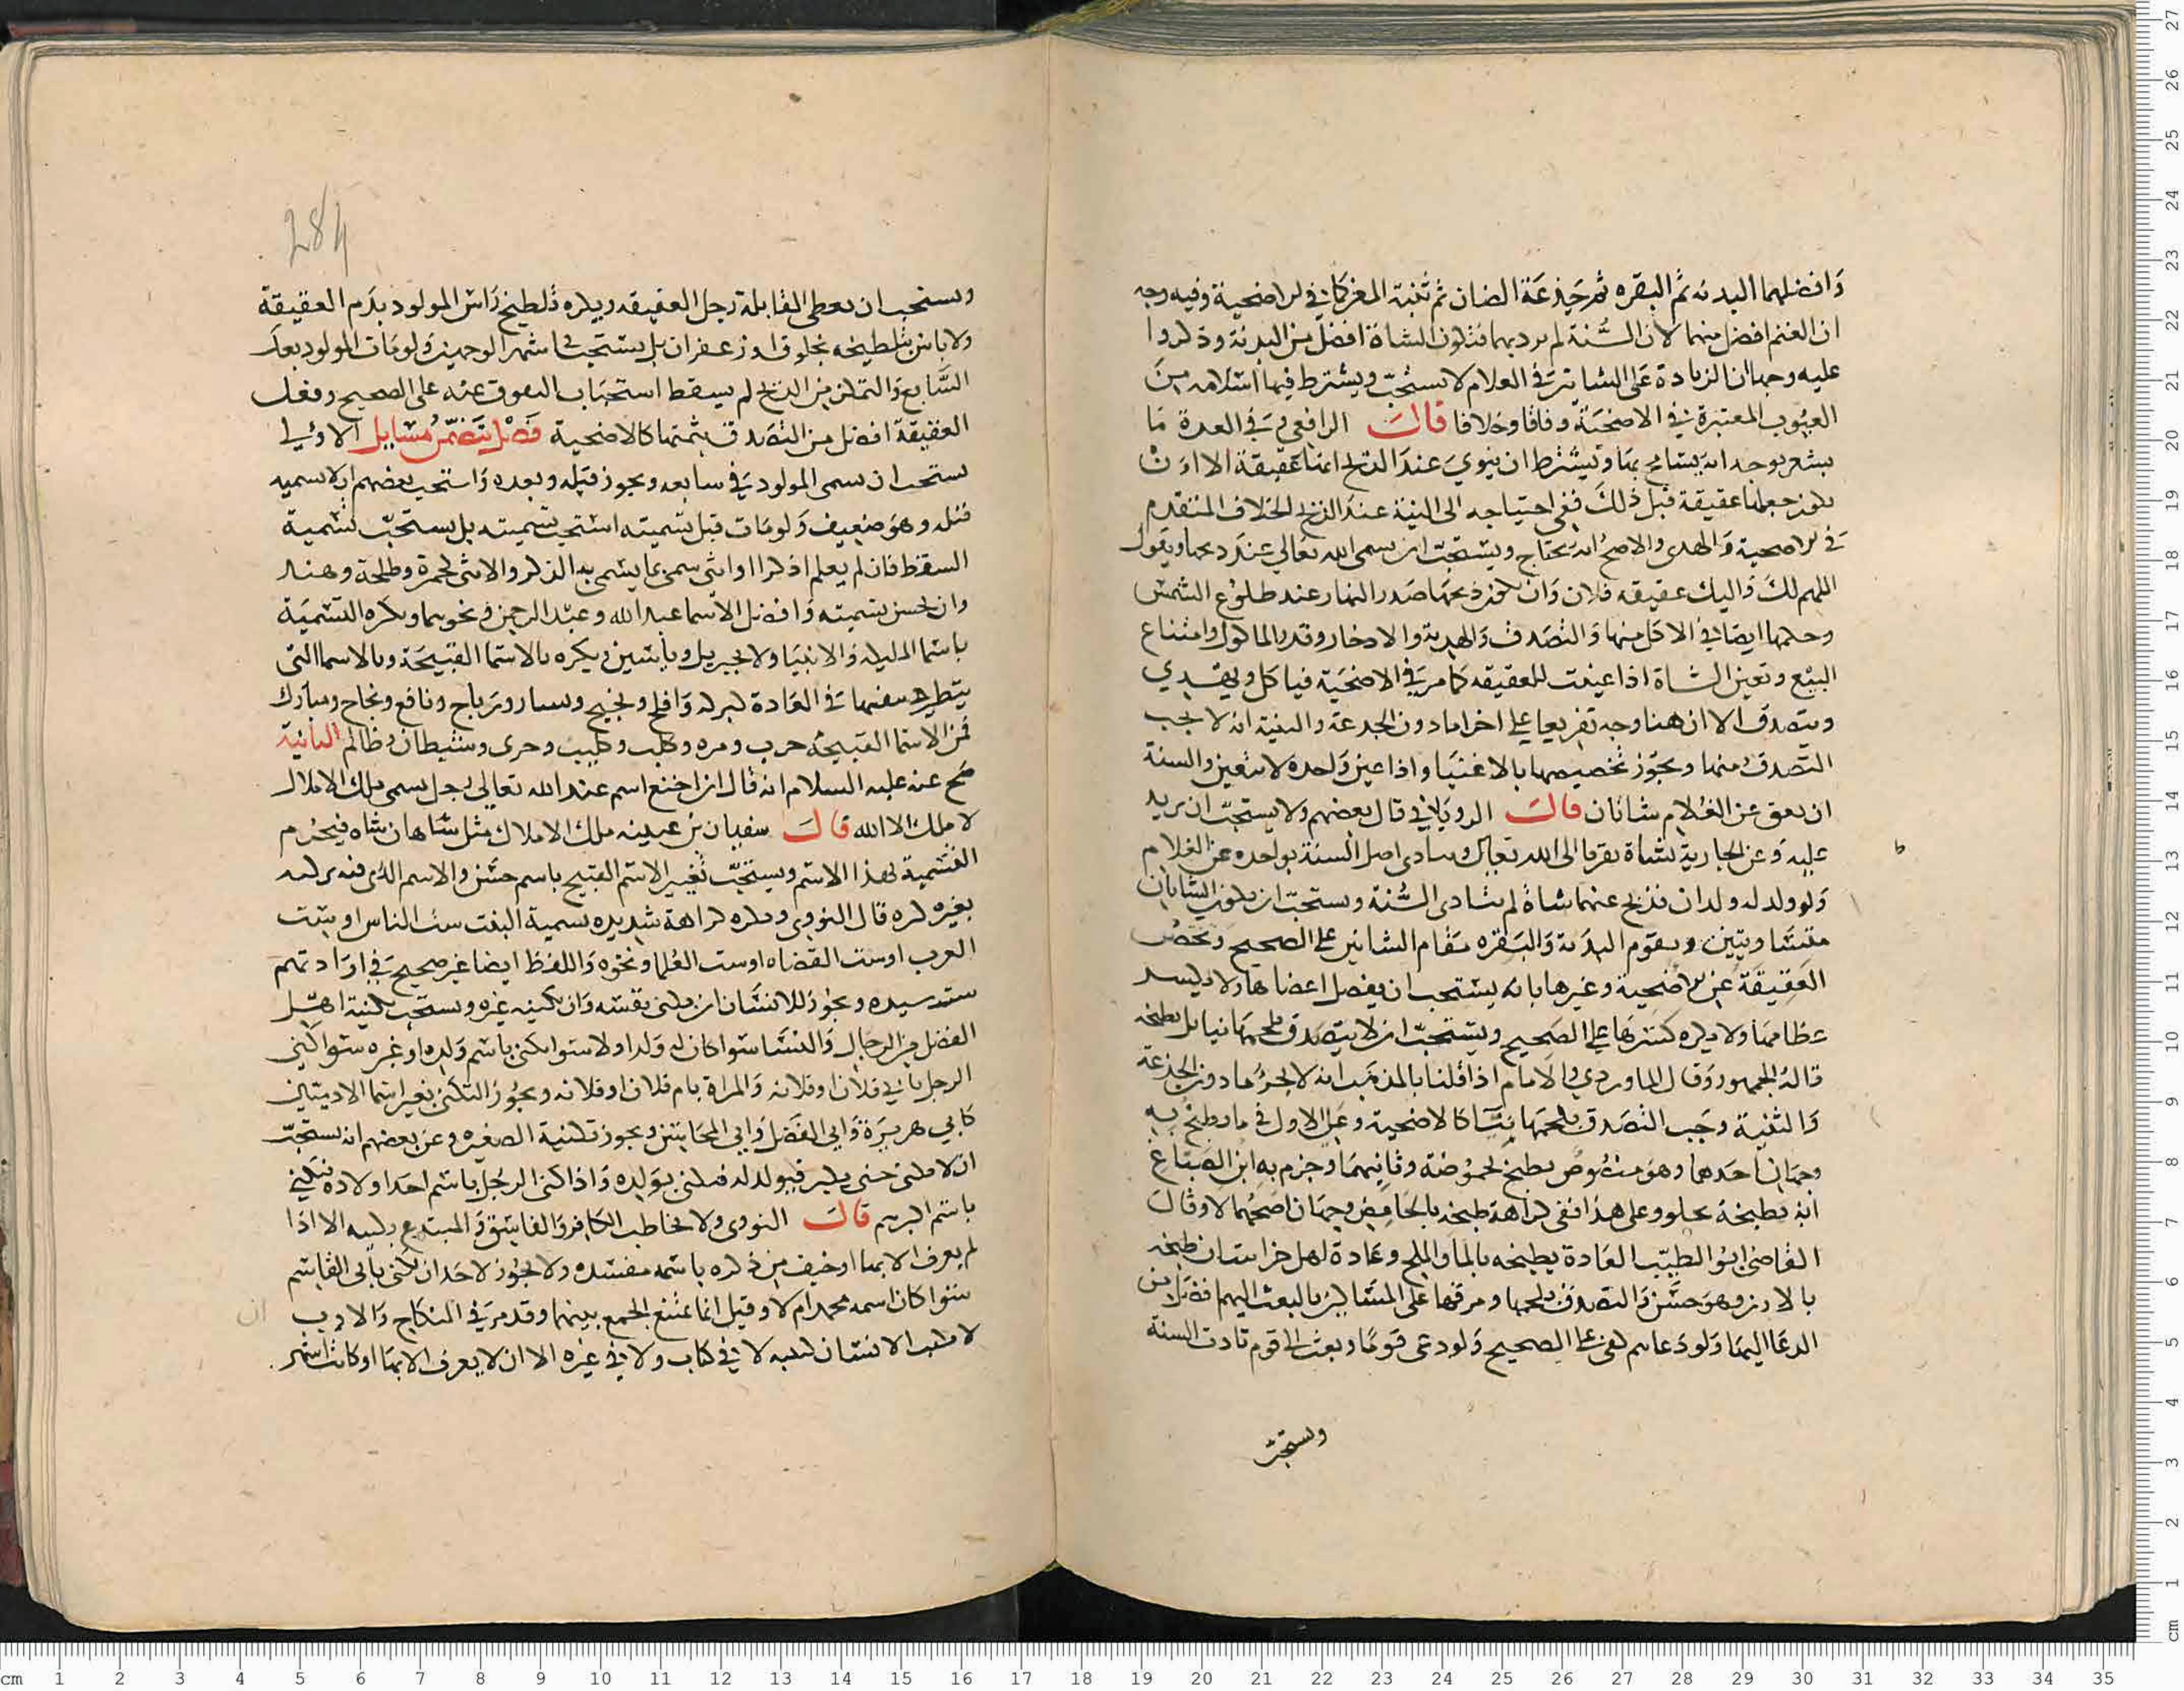 وافضلهما البدنه ثم البقره ثم جذعة الضان ثم ثنية المعز كما في الاضحية وفيه وجه
ان الغنم افضل منهما لان السنة لم ترد بهما فتكون الشاة افضل من البدنة وذكروا
عليه وجها ان الزيادة على الشاتين في الغلام لا يستحب ويشترط فيها السلامة من
العيوب المعتبرة في الاضحية وفاقا وخلافا قال الرافعي وفي العدة ما
يشعر بوجه انه يسامح بها ويشترط ان ينوي عند الذبح انها عقيقة الا ان
يكون جعلها عقيقة قبل ذلك ففي احتياجه الى النية عند الذبح الخلاف المتقدم
في الاضحية والهدى والاصح انه يحتاج ويستحب ان يسمى الله تعالى عند ذبحها ويقول
اللهم لك واليك عقيقه فلان وان يكون ذبحها صدر النهار عند طلوع الشمس
وحكمها ايضا في الاكل منها والتصدق والهدية والادخار وقدر الماكول وامتناع
البيع وتعين الشاة اذا عينت للعقيقه كما مر في الاضحية فياكل ويهدي
ويتصدق الا ان هنا وجه تفريعا على اخراما دون الجدعة والثنية انه لا يجب
التصدق منها ويجوز تخصيصها بالاغنيا واذا عين واحده لا تتعين والسنة
ان يعق عن الغلام شاتان قال الروياني قال بعضهم ولا يستحب ان يزيد
عليه وعن الجارية بشاة تقربا الى الله تعالى ويتادى اصل السنة بواحده عن الغلام
ولو ولد له ولدان فذبح عنهما شاة لم تتادى السنة ويستحب ان تكون الشاتان
متساويتين ويقوم البدنة والبقره مقام الشاتين على الصحيح وتختص
العقيقة عن الاضحية وغيرها بانه يستحب ان يفصل اعضاها ولا يكسر
عظامها ولا يكره كسرها على الصحيح ويستحب ان لا يتصدق بلحمها نيا بل يطبخه
قاله الجمهور وقال الماوردي والامام اذا قلنا بالمذهب انه لا يجزى ما دون الجذعة
والثنية وجب التصدق بلحمها نيا كالاضحية وعلى الاول في ما يطبخ به
وجهان احدهما وهو منصوص يطبخ بحموضة وثانيهما وجزم به ابن الصباغ
انه يطبخه بحلو وعلى هذا ففي كراهة طبخه بالحامض وجهان اصحهما لا وقال
القاضي ابو الطيب العادة يطبخه بالما والملح وعادة اهل خراسان طبخه
بالارز وهو حسن والتصدق بلحمها ومرقها على المساكين بالبعث اليهم افضل من
الدعا اليها ولو دعاهم كفى على الصحيح ولو دعى قوما وبعث الى قوم تادت السنة
ويستحب
284
ويستحب ان يعطى القابلة رجل العقيقه ويكره تلطيخ راس المولود بدم العقيقة
ولا باس بتلطيخه بخلوق او زعفران بل يستحب في اشهر الوجهين ولو مات المولود بعد
السابع والتمكن من الذبح لم يسقط استحباب العقوق عنه على الصحيح وفعل
العقيقة افضل من التصدق بثمنها كالاضحية فصل يتضمن مسايل الاولى
يستحب ان يسمى المولود في سابعه ويجوز قبله وبعده واستحب بعضهم ان لا يسميه
قبله وهو ضعيف ولو مات قبل تسميته استحب تسميته بل يستحب تسمية
السقط فان لم يعلم اذكر او انثى سمى بما يسمى به الذكر والانثى كحمزة وطلحة وهند
وان يحسن تسميته وافضل الاسما عبد الله وعبد الرحمن ونحوهما ويكره التسمية
باسما المليكه والانبيا ولا بجبريل وياسين ويكره بالاسما القبيحة وبالاسما التى
يتطير بنفيها في العادة كبركه وافلح ونجيح ويسار ورباح ونافع ونجاح ومبارك
فمن الاسما القبيحة حرب ومره وكلب وكليب وحرى وشيطان وظالم الثانية
صح عنه عليه السلام انه قال ان اخنع اسم عند الله تعالى رجل يسمى ملك الاملاك
لا ملك الا الله قال سفيان بن عيينه ملك الاملاك مثل شاهان شاه فيحرم
التسمية بهذا الاسم ويستحب تغيير الاسم القبيح باسم حسن والاسم الذى فيه تزكيه
بغيره كره قال النووى ويكره كراهة شديده تسمية البنت ست الناس او ست
العرب او ست القضاه او ست العلما ونحوه واللفظ ايضا غير صحيح في ارادتهم
ست سيده ويجوز للانسان ان يكنى نفسه وان يكنيه غيره ويستحب تكنية اهل
الفضل من الرجال والنسا سوا كان له ولد اولا سوا يكنى باسم ولده او غيره سوا كنى
الرجل بابي فلان او فلانه والمراة بام فلان او فلانه ويجوز التكنى بغير اسما الادميين
كابي هريرة وابي الفضل وابي المحاسن ويجوز تكنية الصغيره وعن بعضهم انه يستحب
ان لا يكنى حتى يكبر فيولد له فيكنى بولده واذا كنى الرجل باسم احد اولاده فيكنى
باسم اكبرهم قال النووى ولا يخاطب الكافر والفاسق والمبتدع بكنيه الا اذا
لم يعرف الا بها او خيف من ذكره باسمه مفسده ولا يجوز لاحد ان يكنى بابى القاسم
سوا كان اسمه محمد ام لا وقيل انما يمتنع الجمع بينهما وقد مر في النكاح والادب ان
لا يكتب الانسان كنيته لا في كتاب ولا في غيره الا ان لا يعرف الا بها او كانت اشهر